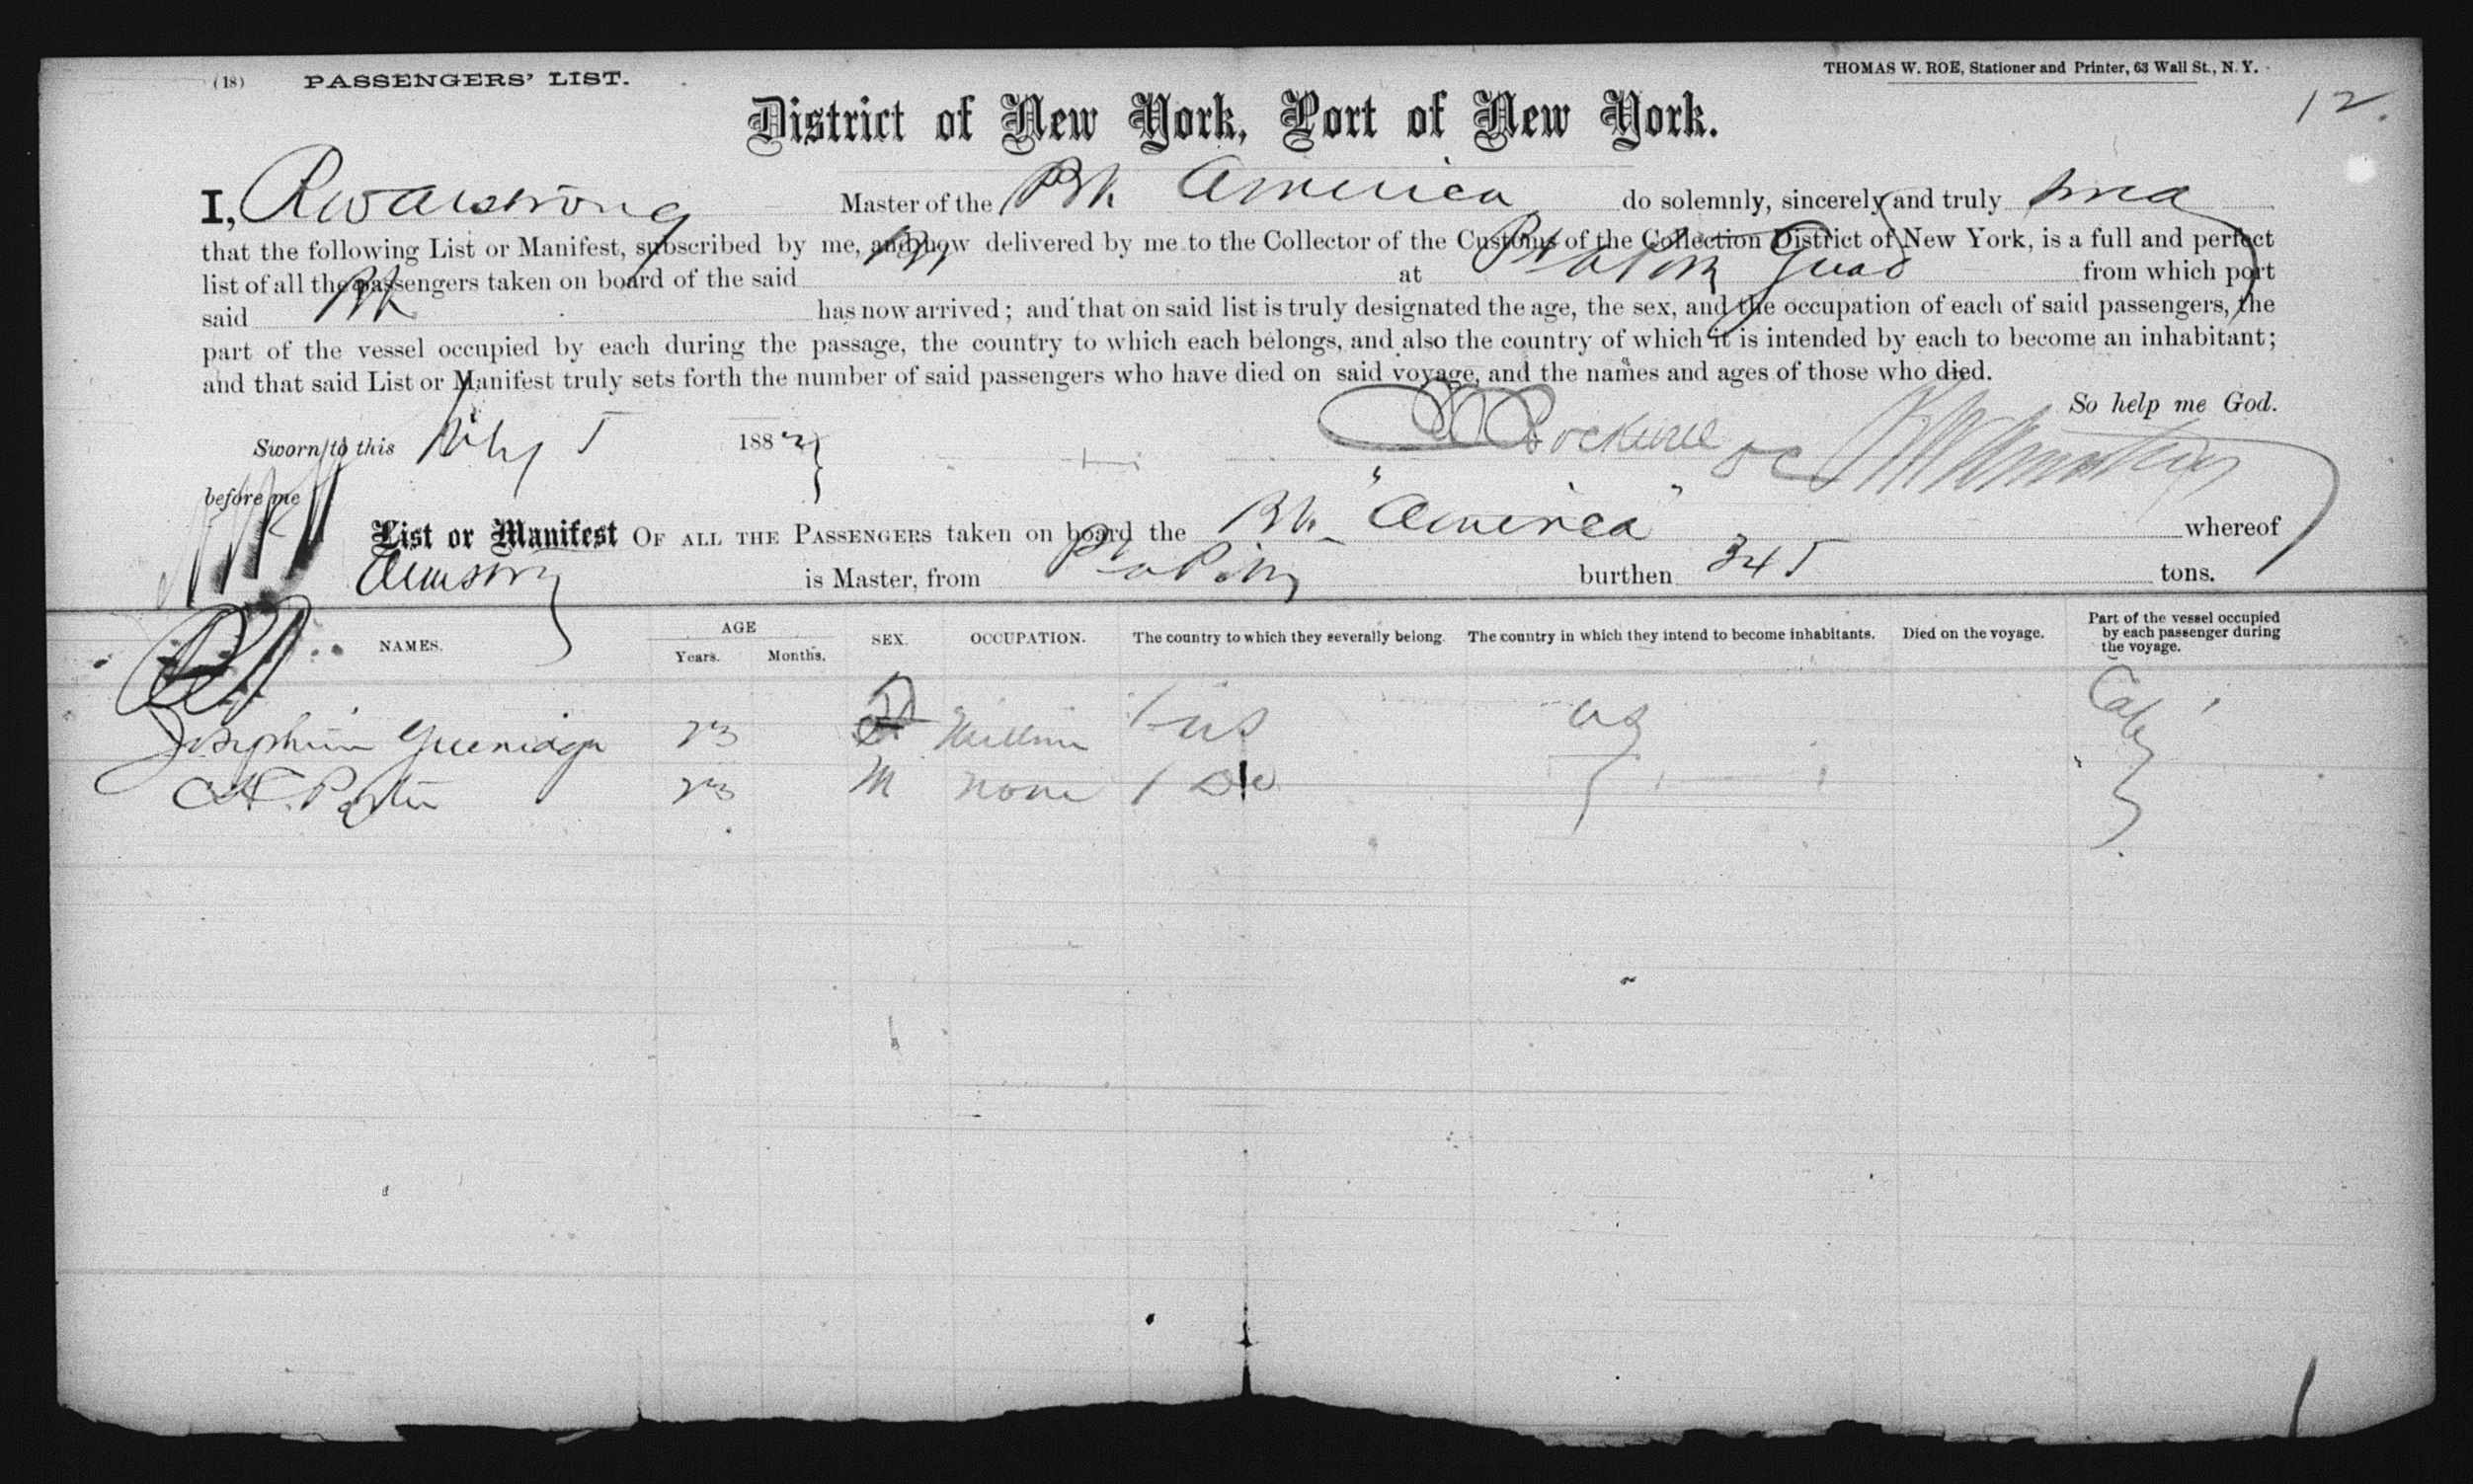 (18) PASSENGERS' LIST.
THOMAS W. ROE, Stationer and Printer, 63 Wall St., N. Y.
12.
District of New York, Port of New York.
I, R W Armstrong Master of the Bk America do solemnly, sincerely and truly
that the following List or Manifest, subscribed by me, and now delivered by me to the Collector of the Customs of the Collection District of New York, is a full and perfect
list of all the passengers taken on board of the said Bk at from which port
said Bk has now arrived; and that on said list is truly designated the age, the sex, and the occupation of each of said passengers, the
part of the vessel occupied by each during the passage, the country to which each belongs, and also the country of which it is intended by each to become an inhabitant;
and that said List or Manifest truly sets forth the number of said passengers who have died on said voyage, and the names and ages of those who died.
So help me God.
Sworn to this 5 188
before me
List or Manifest OF ALL THE PASSENGERS taken on board the Bk "America" whereof
is Master, from burthen 345 tons.
NAMES. AGE Years. Months. SEX. OCCUPATION. The country to which they severally belong. The country in which they intend to become inhabitants. Died on the voyage. Part of the vessel occupied by each passenger during the voyage.
Josephine 23 US US Cab
Porter 23 M None Do